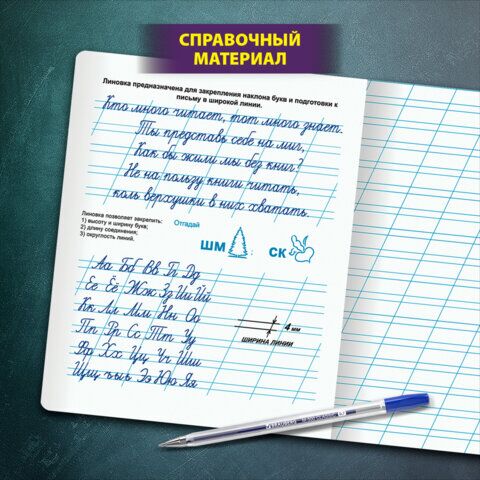 СПРАВОЧНЫЙ
МАТЕРИАЛ
Линовка предназначена для закрепления наклона букв и подготовки к
письму в широкой линии.
Кто много читает, тот много знает.
Ты представь себе на миг,
Как бы жили мы без книг?
Не на пользу книги читать,
коль верхушки в них хватать.
Линовка позволяет закрепить:
1) высоту и ширину букв;
2) длину соединения;
3) округлость линий.
Отгадай
ШМ СК
Аа Бб Вв Гг Дд
Ее Ёё Жж Зз Ии Йй
Кк Лл Мм Нн Оо
Пп Рр Сс Тт Уу
Фф Хх Цц Чч Шш
Щщ ъ ы ь Ээ Юю Яя
4 мм
ШИРИНА ЛИНИИ
BRAUBERG